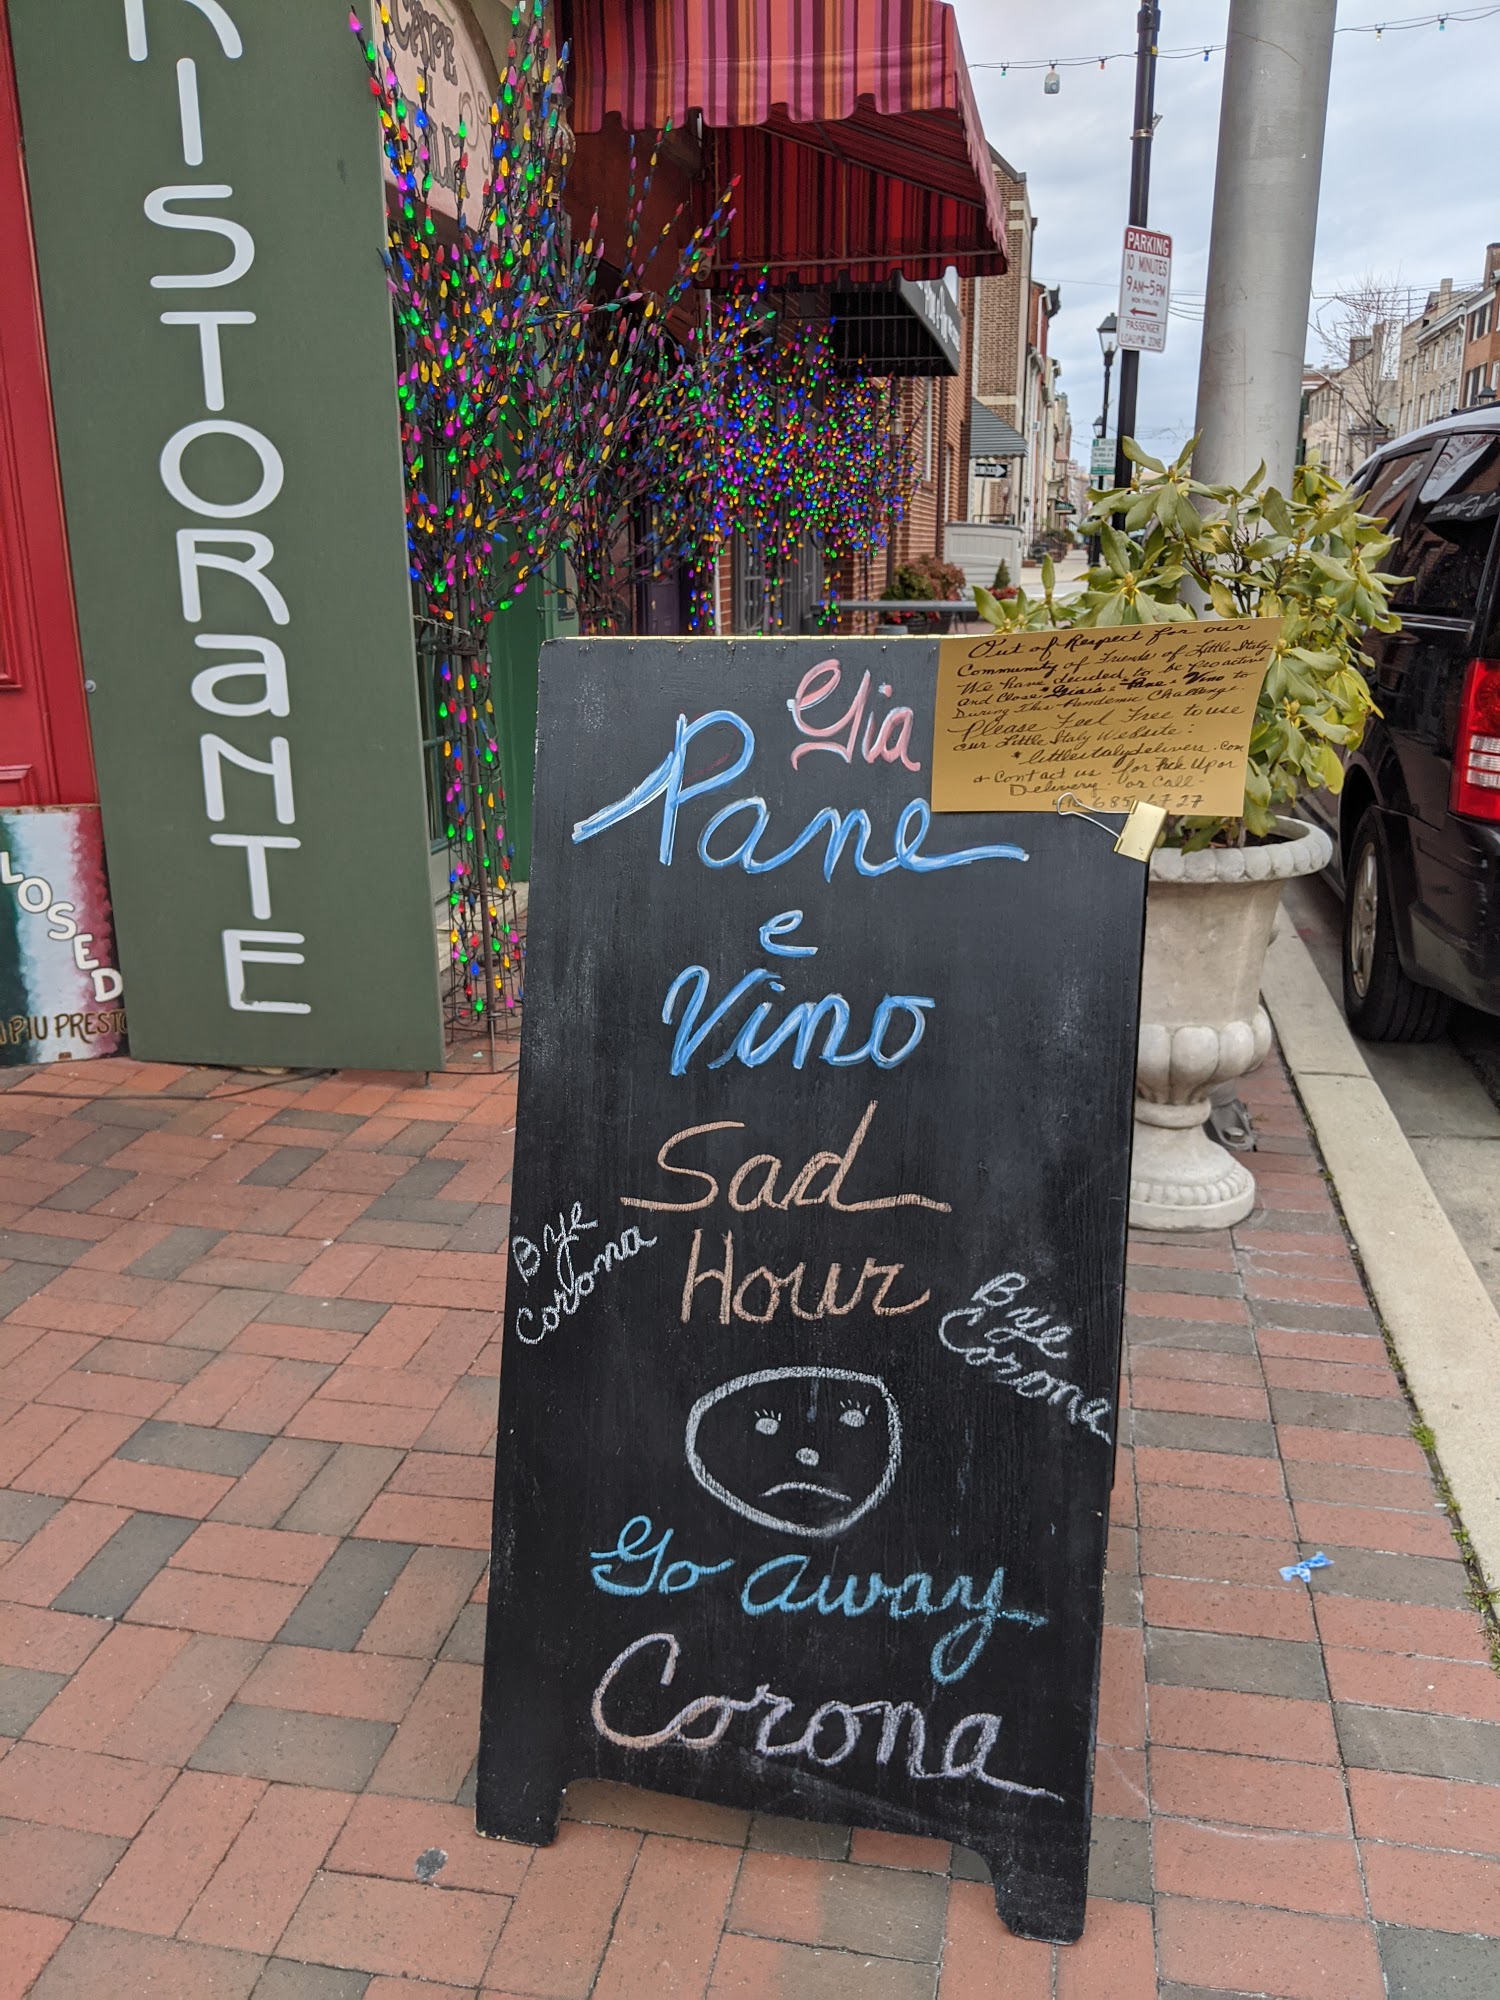 RISTORANTE
CAFE
LOSED
A PIU PRESTO
PARKING
10 MINUTES
9AM-5PM
MON THRU FRI
PASSENGER
LOADING ZONE
Gia
Pane
e
Vino
Sad
Hour
Bye
Corona
Bye
Corona
Go Away
Corona
Out of Respect for our
Community of Friends of Little Italy
We have decided to be Proactive
and Close "Gia's & Pane e Vino to
During This Pandemic Challenge.
Please Feel Free to use
our Little Italy Website:
* littleitalydelivers.com
& Contact us for Pick Up or
Delivery. or Call -
410 685 6727